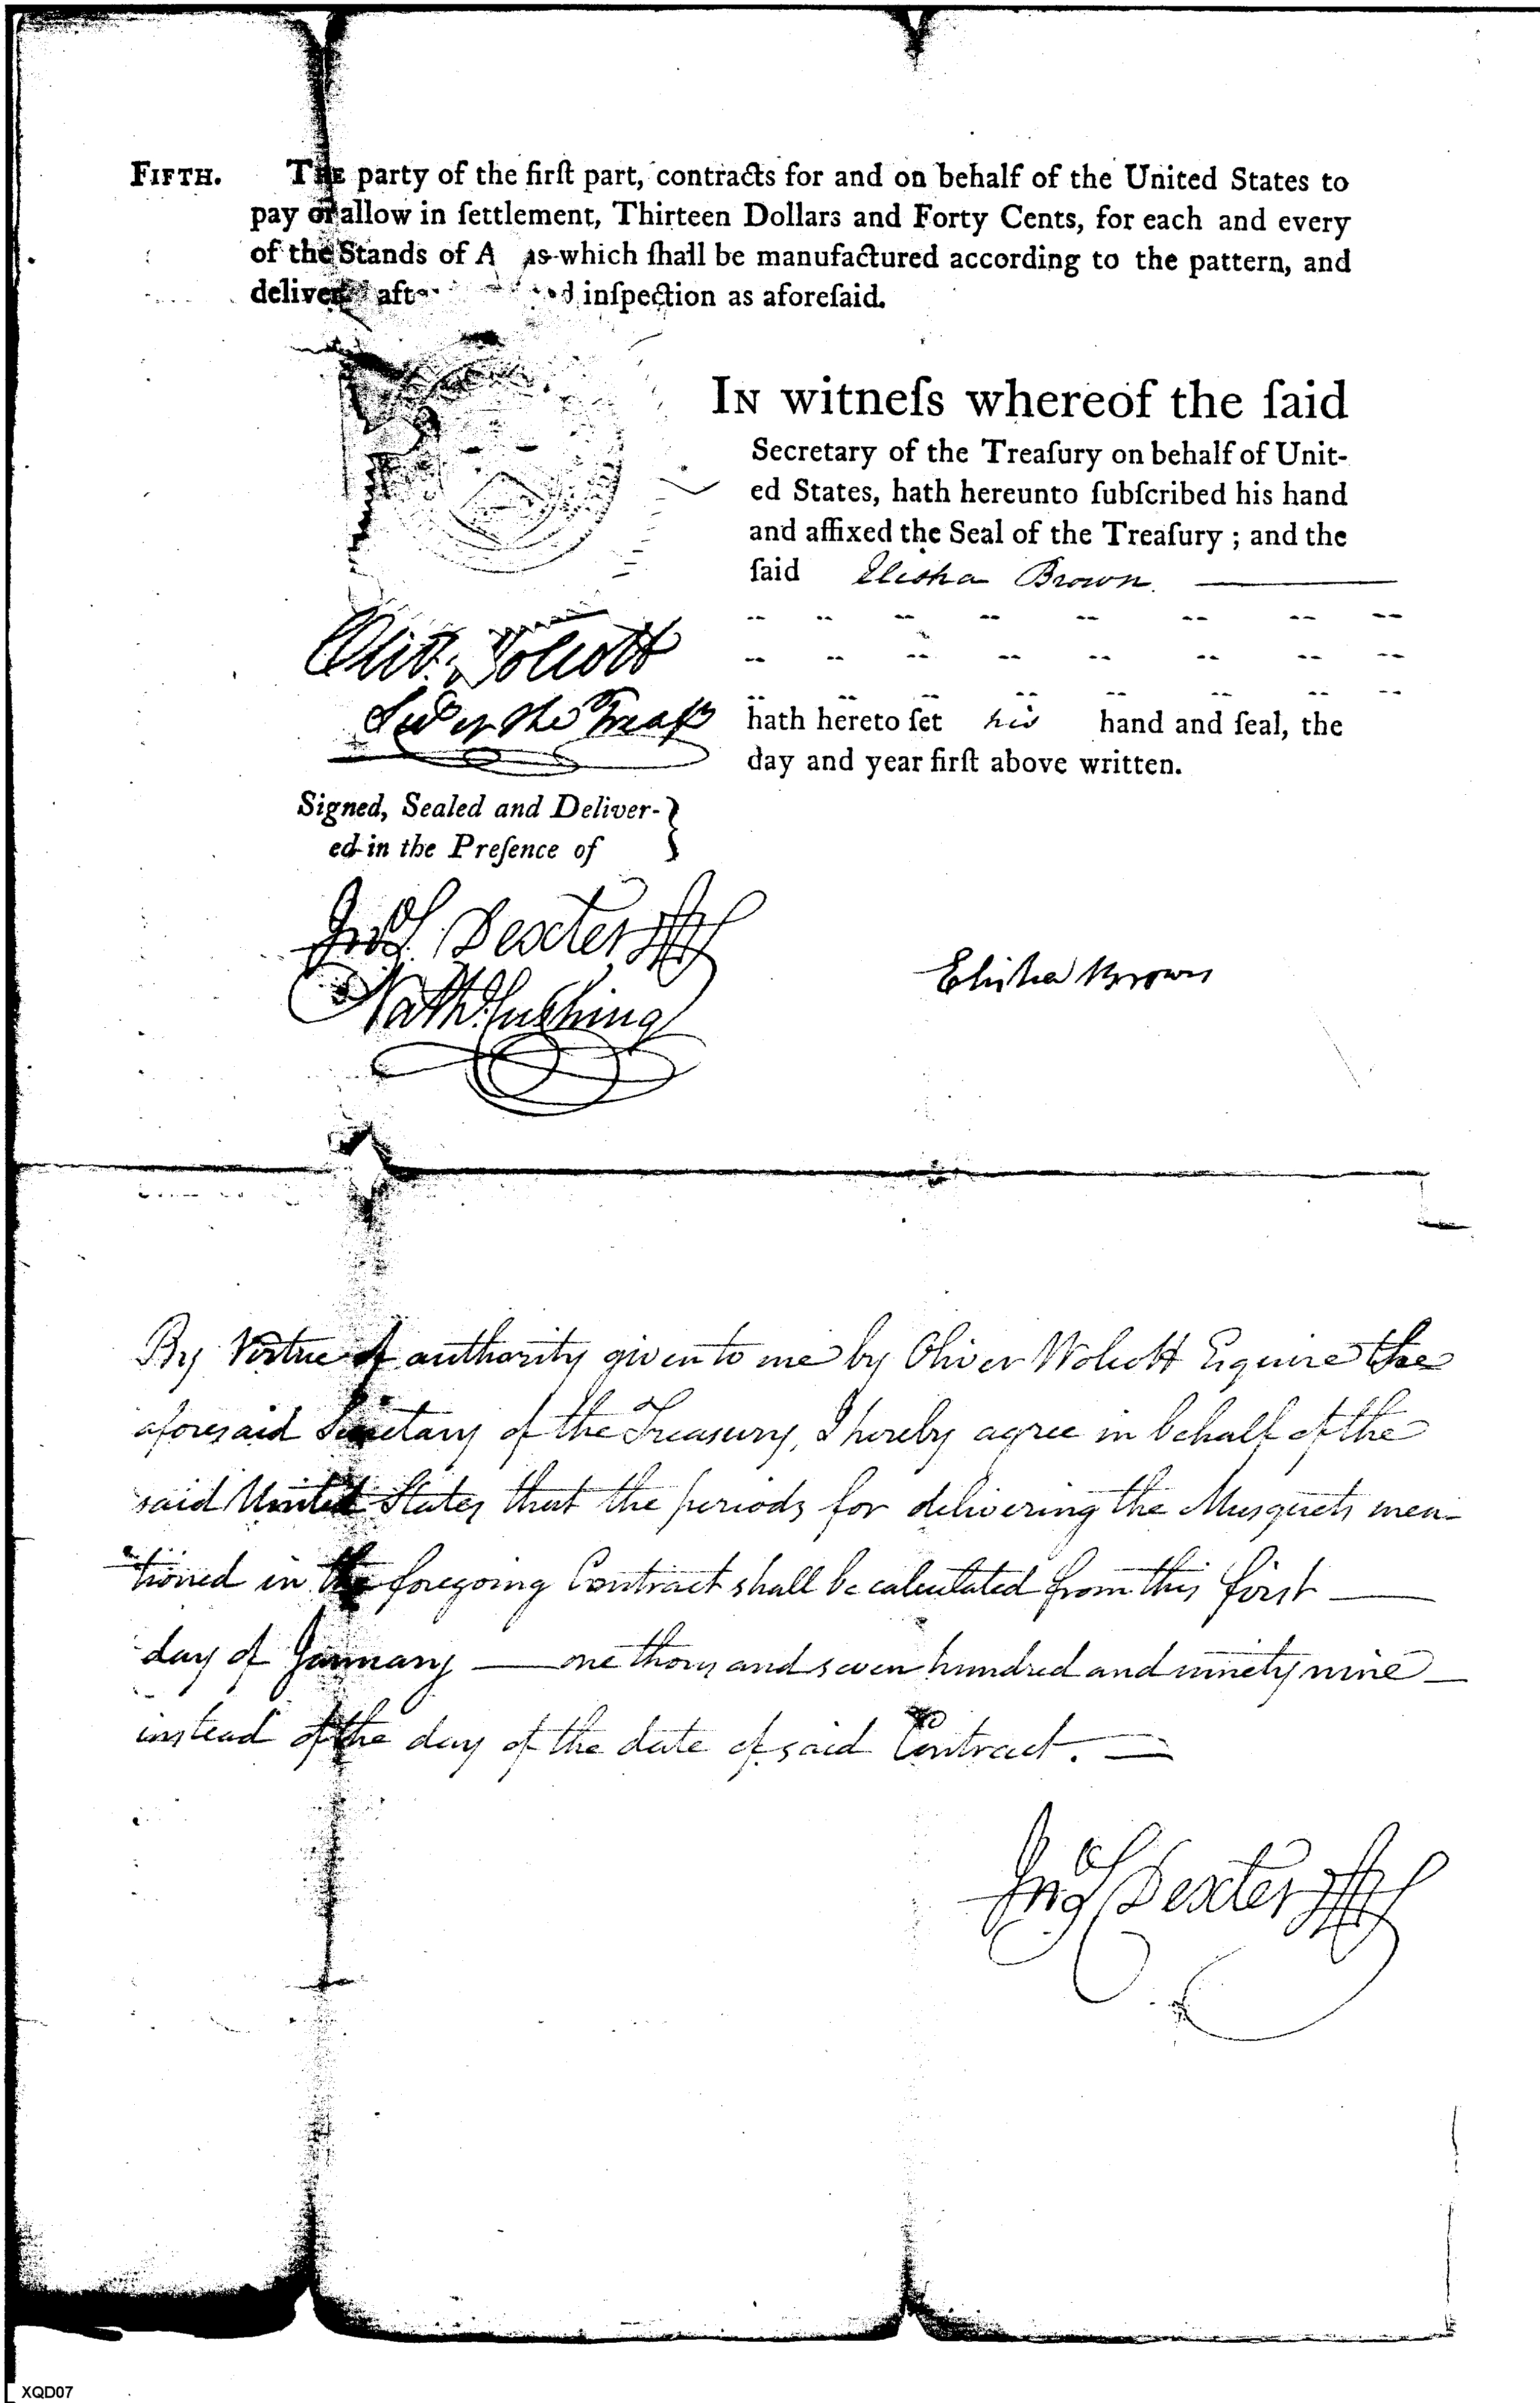 FIFTH. THE party of the firſt part, contracts for and on behalf of the United States to
pay or allow in ſettlement, Thirteen Dollars and Forty Cents, for each and every
of the Stands of A as which ſhall be manufactured according to the pattern, and
deliver aft d inſpection as aforeſaid.
IN witneſs whereof the ſaid
Secretary of the Treaſury on behalf of Unit-
ed States, hath hereunto ſubſcribed his hand
and affixed the Seal of the Treaſury ; and the
ſaid Elisha Brown.
hath hereto ſet his hand and ſeal, the
day and year firſt above written.
Oliv. Wolcott
Secy of the Treasy
Signed, Sealed and Deliver-
ed in the Preſence of
Jno S. Dexter
Nathl Cushing
Elisha Brown
By Virtue of authority given to me by Oliver Wolcott Esquire the
aforesaid Secretary of the Treasury, I hereby agree in behalf of the
said United States that the periods for delivering the Musquets men-
tioned in the foregoing Contract shall be calculated from this first
day of January one thousand seven hundred and ninety nine
instead of the day of the date of said Contract.
Jno S Dexter
XQD07